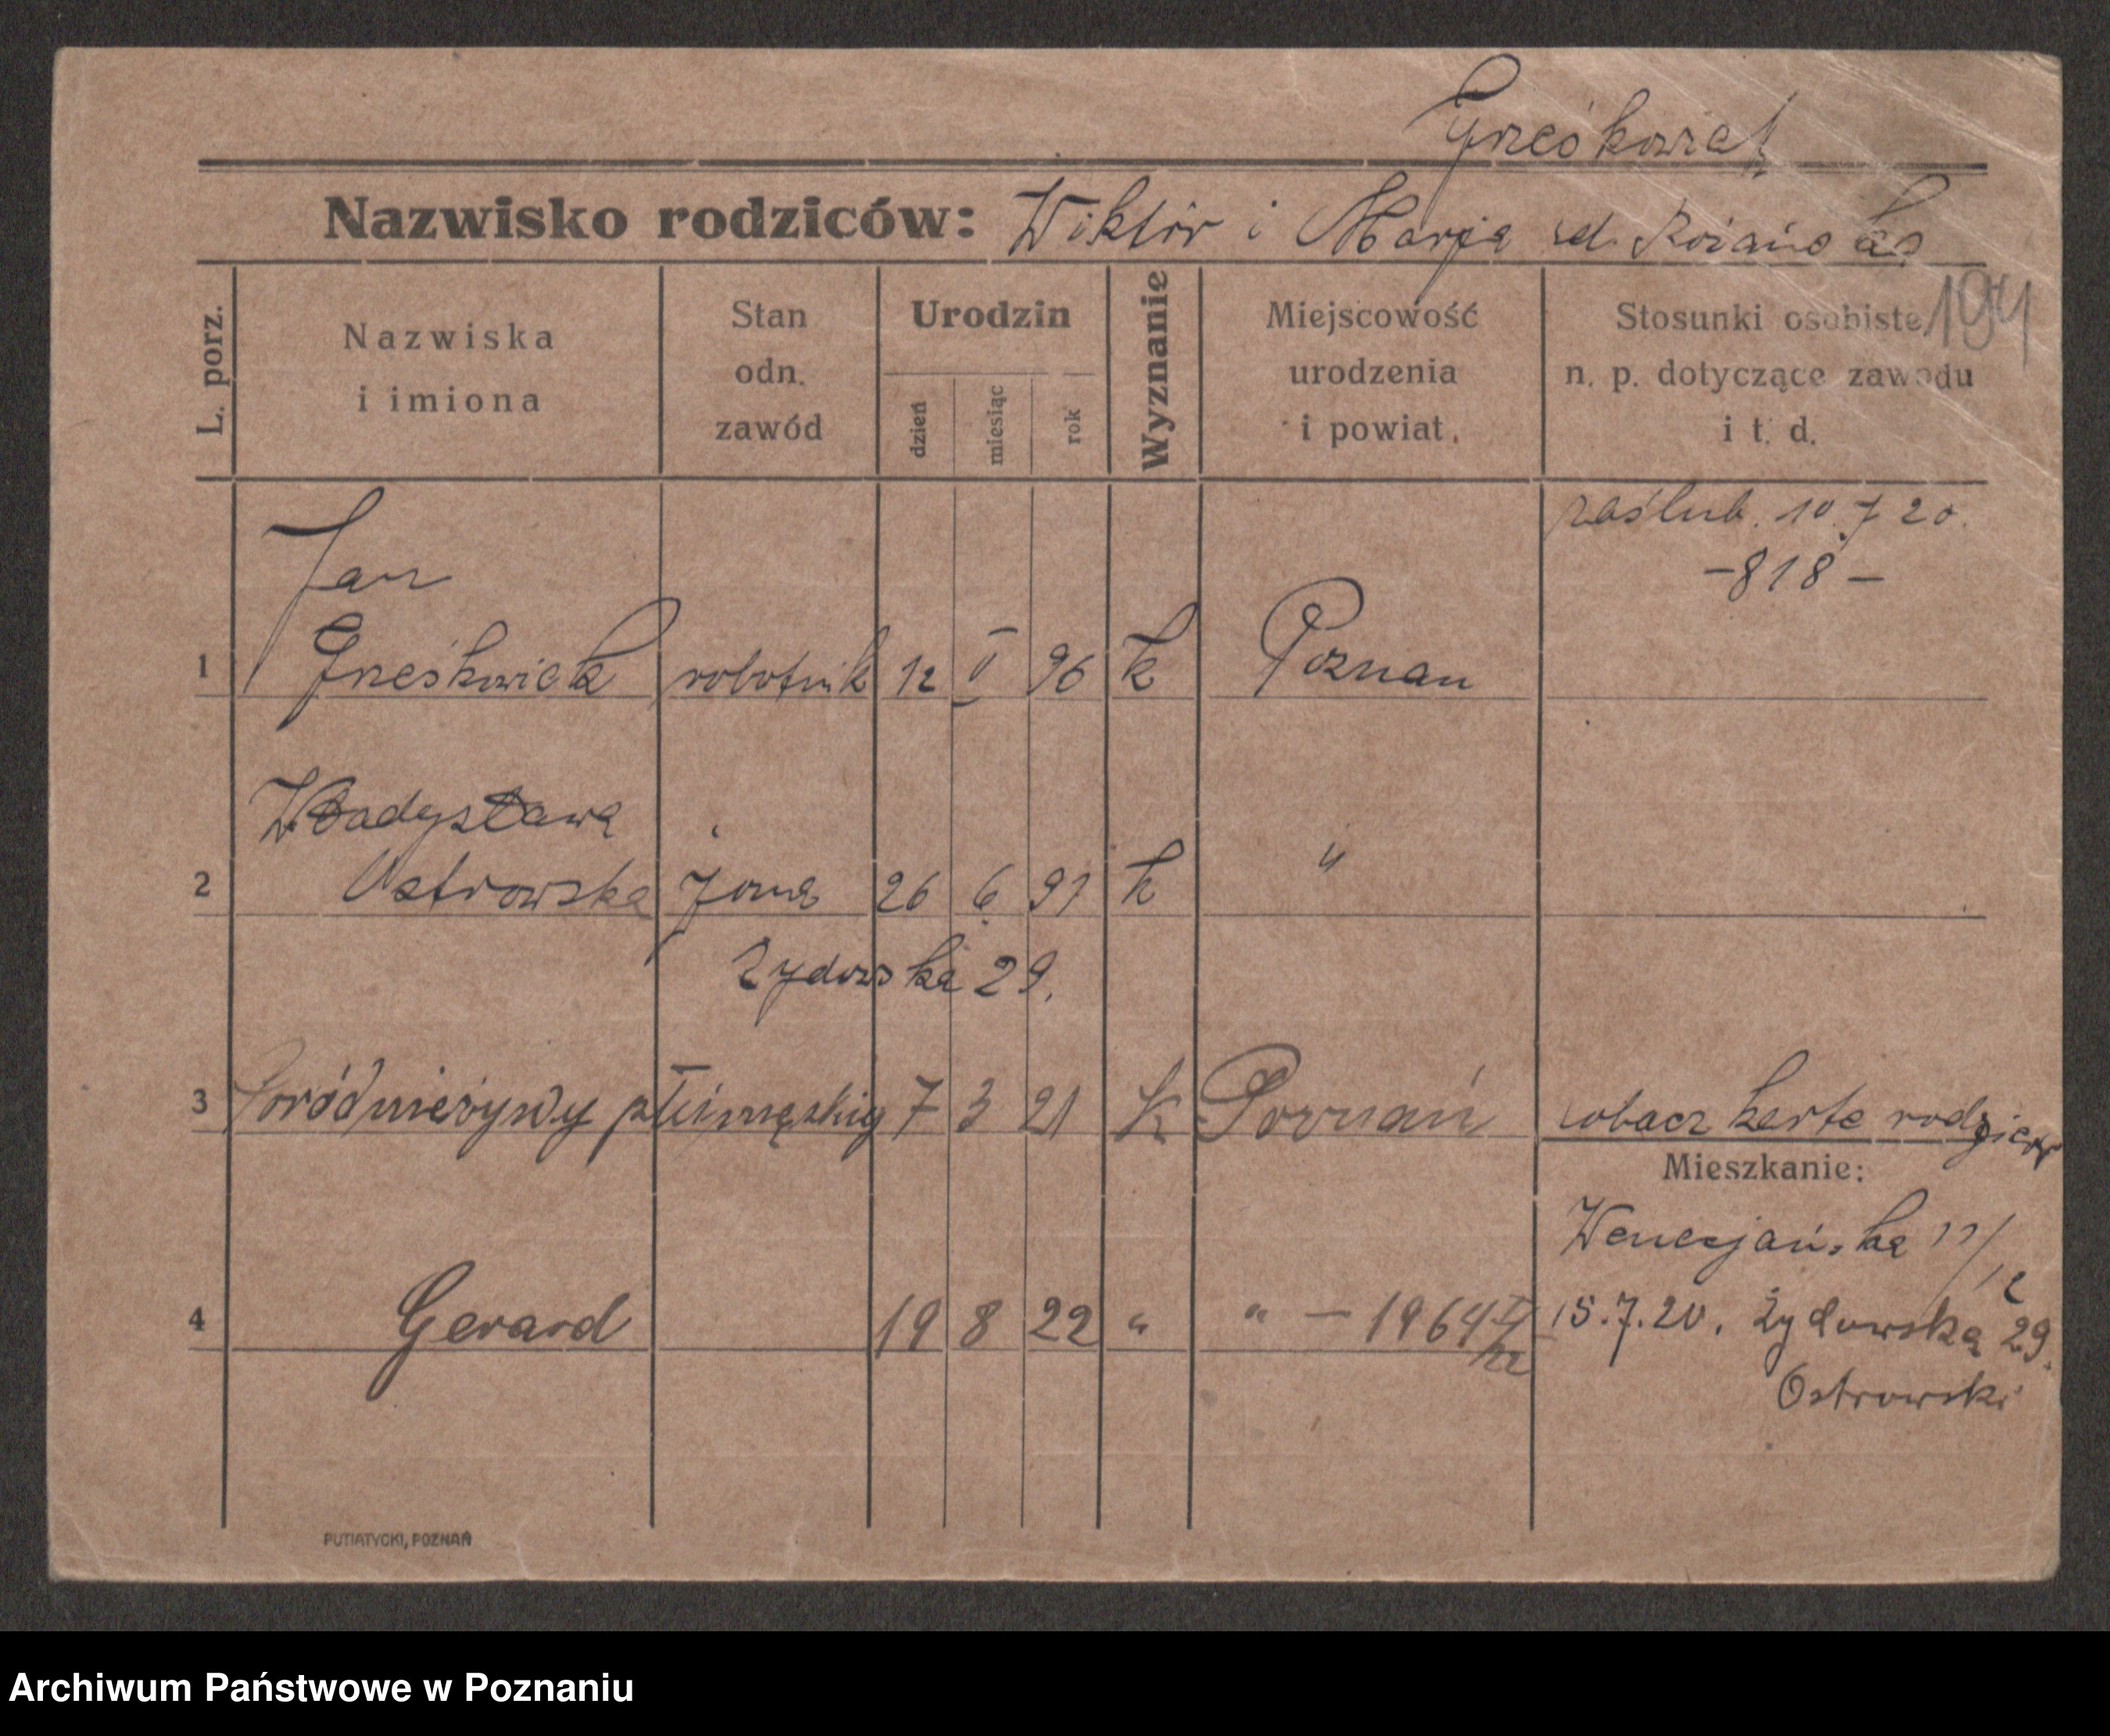 Grześkowiak
Nazwisko rodziców: Wiktor i Marja
L. porz.
Nazwiska
i imiona
Stan
odn.
zawód
Urodzin
dzień
miesiąc
rok
Wyznanie
Miejscowość
urodzenia
i powiat.
Stosunki osobiste
n. p. dotyczące zawodu
i t. d.
194
zaślub. 10.7 20.
-818-
Jan
1 Grześkowiak robotnik 12 V 96 k Poznan
Władysława
2 Ostrowska żona 26 6 97 k "
Zydowska 29.
3 Poród nieżywy płci męskiej 7 3 21 K Poznań zobacz kartę rodziców
Mieszkanie:
Wenecjańska
4 Gerard 19 8 22 " " - 1964
15.7.20. Żydowska 29.
Ostrowski
PUTIATYCKI, POZNAŃ
Archiwum Państwowe w Poznaniu